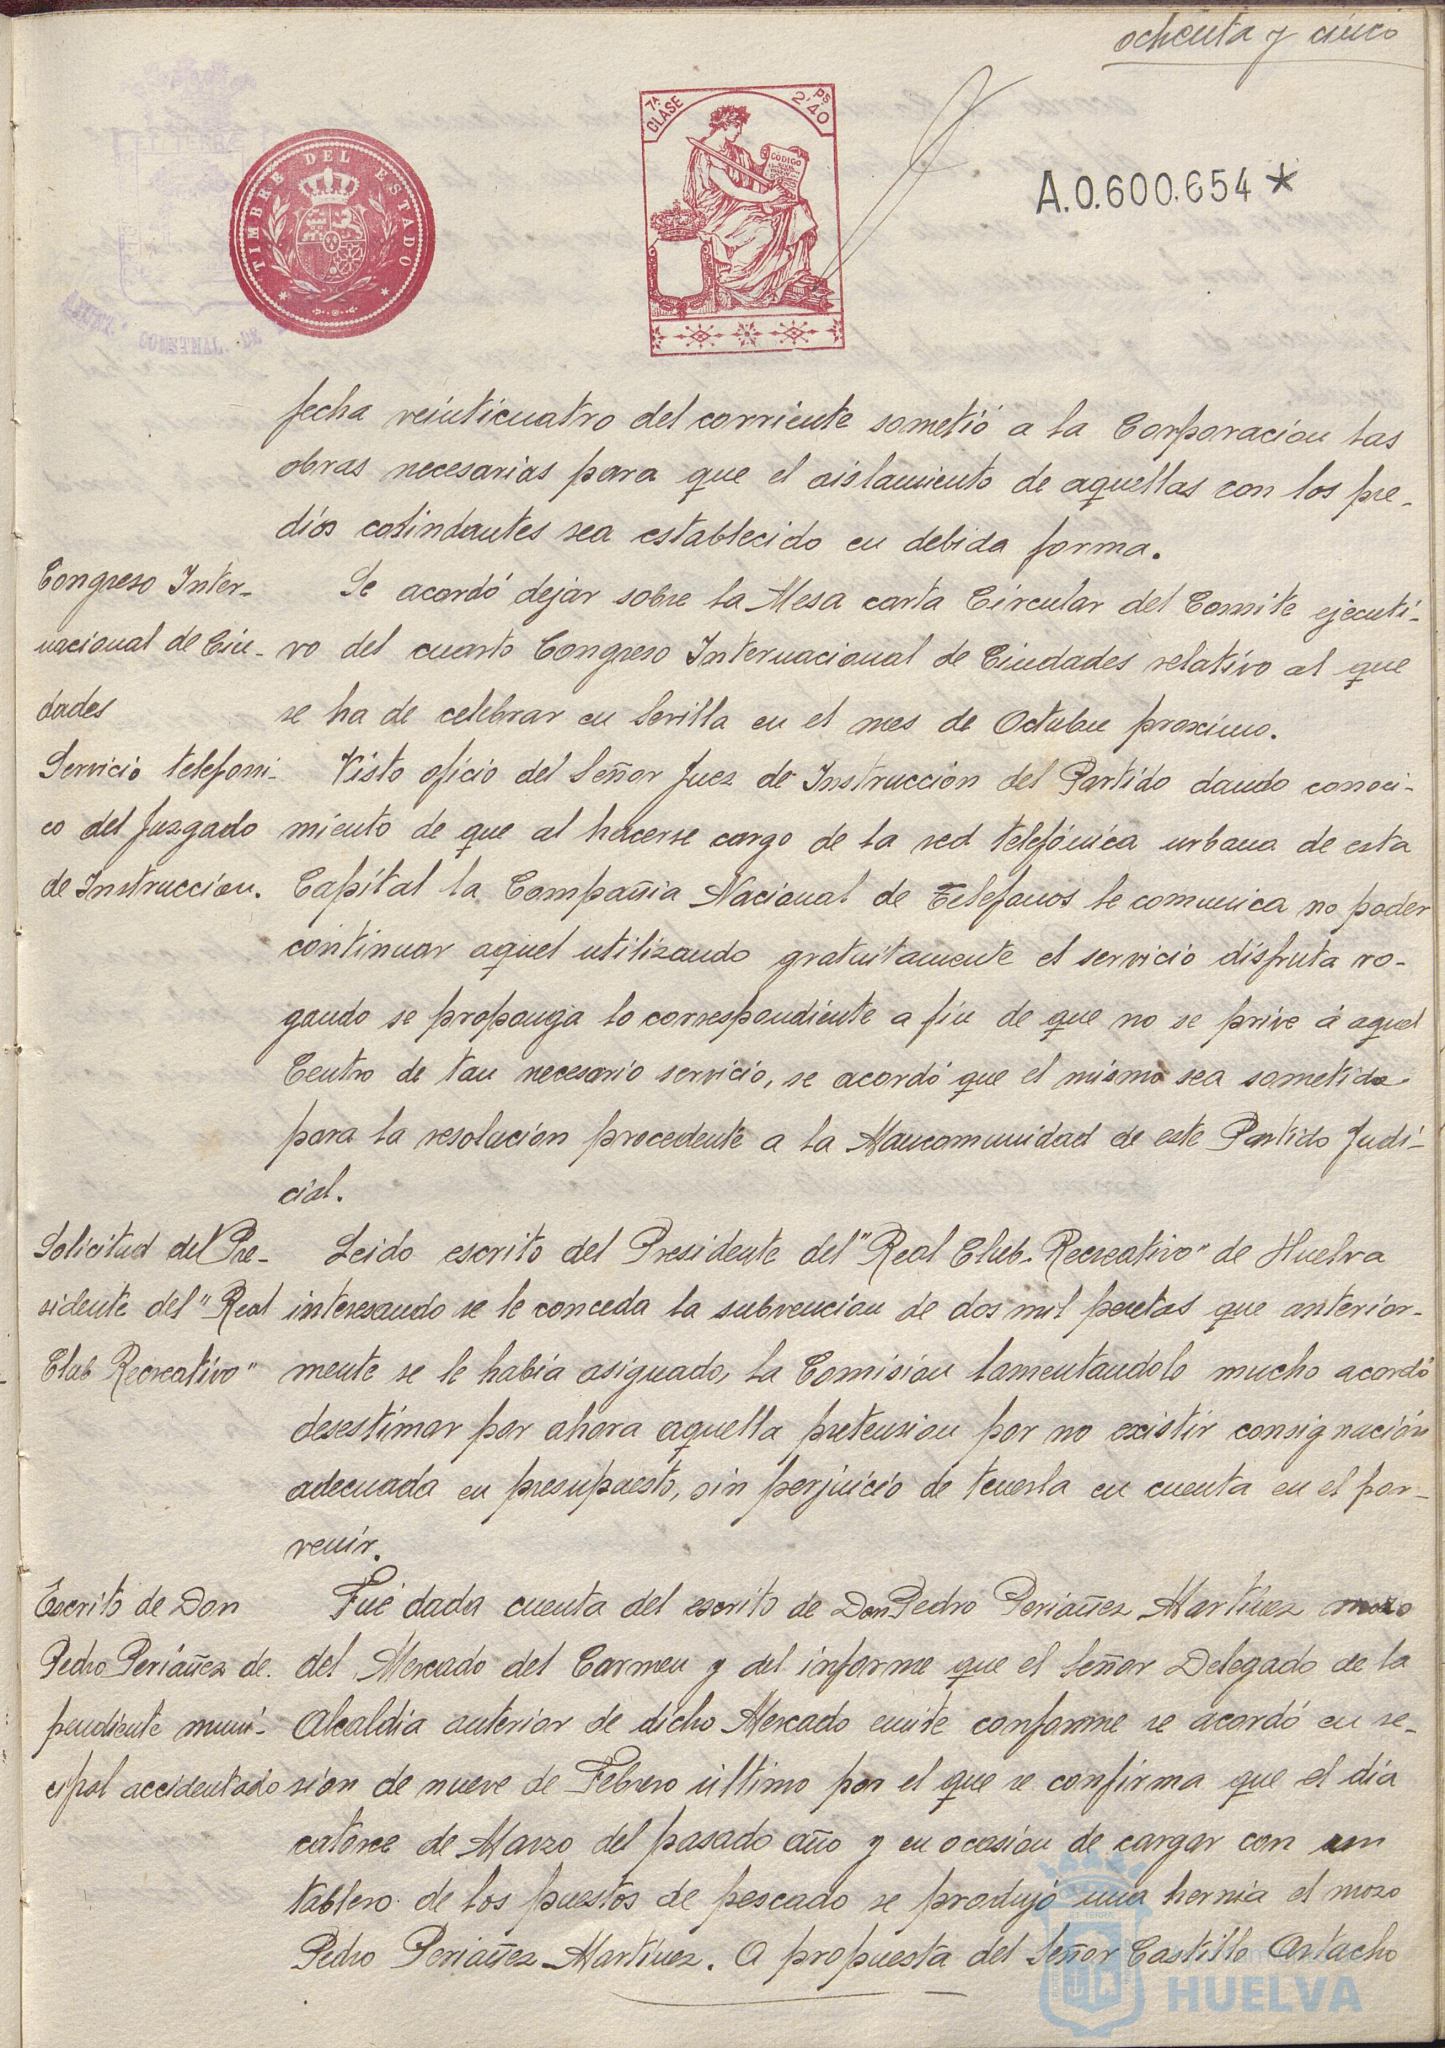 ochenta y cinco
TIMBRE DEL ESTADO
7ª CLASE
PS 2'40
CODIGO
A.0.600.654 *
CONSTNAL. DE
fecha veinticuatro del corriente sometió a la Corporacion las
obras necesarias para que el aislamiento de aquellas con los pre-
dios colindantes sea establecido en debida forma.
Congreso Inter-
nacional de Ciu-
dades
Se acordó dejar sobre la Mesa carta Circular del Comite ejecuti-
vo del cuarto Congreso Internacional de Ciudades relativo al que
se ha de celebrar en Sevilla en el mes de Octubre proximo.
Servicio telefoni-
co del Juzgado
de Instruccion.
Visto oficio del Señor Juez de Instrucción del Partido dando conoci-
miento de que al hacerse cargo de la red telefónica urbana de esta
Capital la Compañia Nacional de Telefonos le comunica no poder
continuar aquel utilizando gratuitamente el servicio disfruta ro-
gando se proponga lo correspondiente a fin de que no se prive á aquel
Centro de tan necesario servicio, se acordó que el mismo sea sometido
para la resolucion procedente a la Mancomunidad de este Partido Judi-
cial.
Solicitud del Pre-
sidente del "Real
Club Recreativo"
Leido escrito del Presidente del "Real Club Recreativo" de Huelva
interesando se le conceda la subvencion de dos mil pesetas que anterior-
mente se le habia asignado, la Comision lamentandolo mucho acordó
desestimar por ahora aquella pretension por no existir consignación
adecuada en presupuesto, sin perjuicio de tenerla en cuenta en el por-
venir.
Escrito de Don
Pedro Periáñez de-
pendiente muni-
cipal accidentado
Fué dada cuenta del escrito de Don Pedro Periañez Martinez mozo
del Mercado del Carmen y del informe que el Señor Delegado de la
Alcaldia anterior de dicho Mercado emite conforme se acordó en se-
sion de nueve de Febrero último por el que se confirma que el dia
catorce de Marzo del pasado año y en ocasion de cargar con un
tablero de los puestos de pescado se produjo una hernia el mozo
Pedro Periañez Martinez. A propuesta del Señor Castillo Artacho
HUELVA